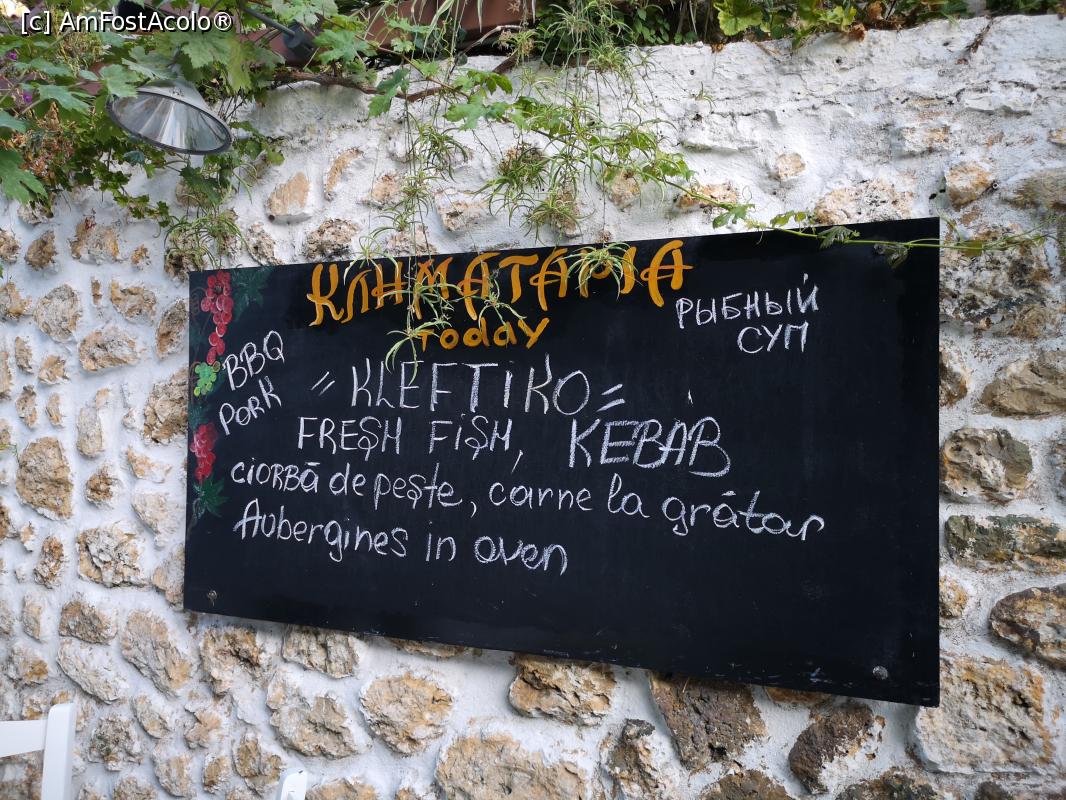 [c] AmFostAcolo®
ΚΛΗΜΑΤΑΡΙΑ
today
РЫБНЫЙ
СУП
BBQ
PORK
"KLEFTIKO"
FREŞH FİŞH, KEBAB
CIORBĂ de peşte, carne la grătar
Aubergines in oven